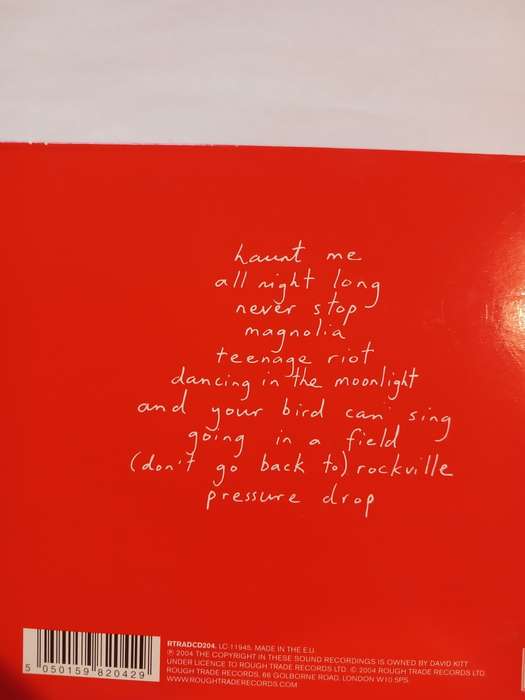 haunt me
all night long
never stop
magnolia
teenage riot
dancing in the moonlight
and your bird can sing
going in a field
(don't go back to) rockville
pressure drop
5 050159 820429
RTRADCD204. LC 11945. MADE IN THE E.U.
℗ 2004 THE COPYRIGHT IN THESE SOUND RECORDINGS IS OWNED BY DAVID KITT
UNDER LICENCE TO ROUGH TRADE RECORDS LTD. © 2004 ROUGH TRADE RECORDS LTD.
ROUGH TRADE RECORDS, 66 GOLBORNE ROAD. LONDON W10 5PS.
WWW.ROUGHTRADERECORDS.COM